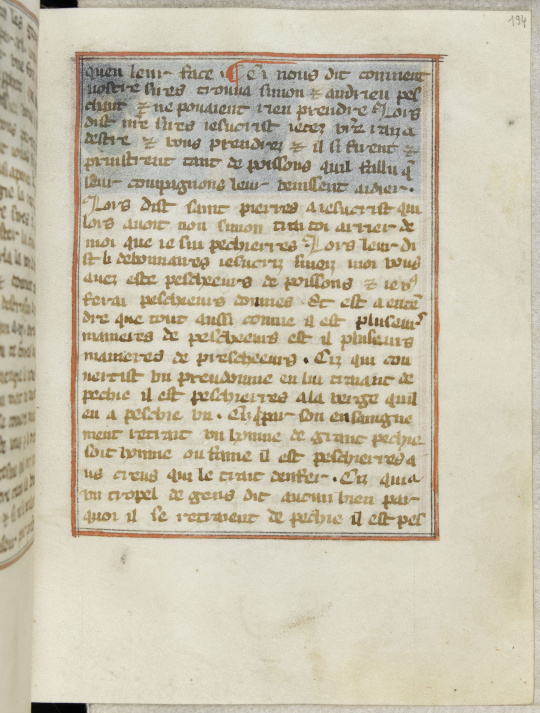 194
quen leur face. Ci nous dit comment
nostre sires trouva simon ⁊ andrieu pes
chant ⁊ ne pouaient rien prendre Lors
dist nr̄e sires iesucrist ietez vr̄e rais a
destre ⁊ vous prendrez ⁊ il si firent ⁊
prinstrent tant de poissons quil fallu q̄
leur compaignons leur venissent aidier.
Lors dist saint pierres a iesucrist qui
lors auoit non simon trai toi arrier de
moi que ie sui pechierres. Lors leur di
st li debonnaires iesucriz siuez moi vous
auez este pescheeurs de poissons ⁊ ie v9
ferai pescheeurs dommes. Et est a enten̄
dre que tout aussi comme il est pluseurs
manieres de pescheeurs est il pluseurs
manieres de prescheeurs. Cilz qui con
uertist vn preudomme en lui tirant de
pechie il est peschierres a la verge quil
en a peschie vn. Cilz qui par son ensaingne
ment retrait vn homme de grant pechie
soit homme ou fame il est peschierres a
us creus qui le trait denfer. Cilz qui a
vn tropel de gens dit aucun bien par
quoi il se retraient de pechie il est pes